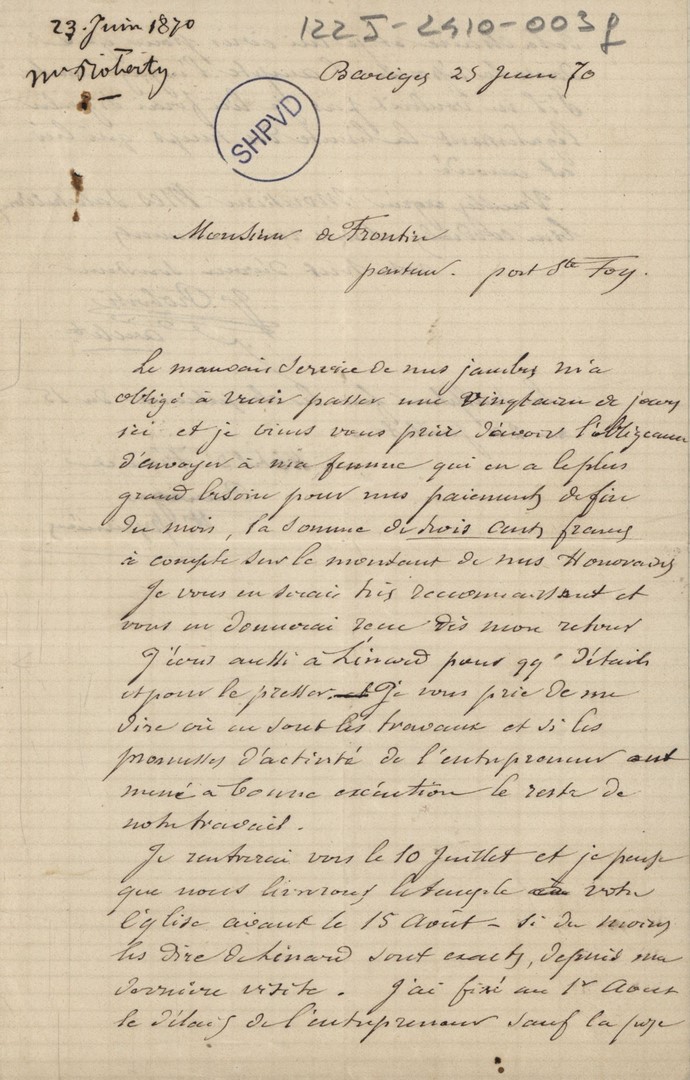 23 Juin 1870
122 J-2410-003
Barèges 25 Juin 70
SHPVD
Monsieur de Frontin
pasteur. port Ste Foy.
Le mauvais service de mes jambes m'a
obligé à venir passer une vingtaine de jours
ici et je viens vous prier d'avoir l'obligeance
d'envoyer à ma femme qui en a le plus
grand besoin pour mes paiements de fin
du mois, la somme de trois cents francs
à compte sur le montant de mes Honoraires
Je vous en serais très reconnaissant et
vous en donnerai recu dès mon retour
J'écris aussi à Linard pour qq' détails
et pour le presser. Je vous prie de me
dire où en sont les travaux et si les
promesses d'activité de l'entrepreneur ont
mené à bonne exécution le reste de
notre travail.
Je rentrerai vers le 10 Juillet et je pense
que nous livrerons le temple votre
Eglise avant le 15 Août - si du moins
les dire de Linard sont exacts, depuis ma
dernière visite. J'ai fixé au 1r Aout
le délais de l'entrepreneur sauf la pose